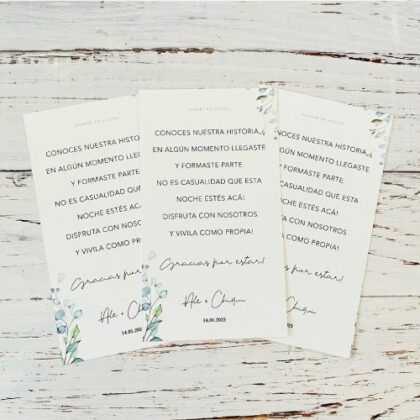 CONOCES NUESTRA HISTORIA,
EN ALGÚN MOMENTO LLEGASTE
Y FORMASTE PARTE.
NO ES CASUALIDAD QUE ESTA
NOCHE ESTÉS ACÁ!
DISFRUTA CON NOSOTROS
Y VIVILA COMO PROPIA!
Gracias por estar!
Ale + Chiqui
14.01.2023
CONOCES NUESTRA HISTORIA
EN ALGÚN MOMENTO LLEGAS
Y FORMASTE PARTE.
NO ES CASUALIDAD QUE ES
NOCHE ESTÉS ACÁ!
DISFRUTA CON NOSOTR
Y VIVILA COMO PROPI
Gracias por
Ale +
14.01.202
NUESTRA HISTORIA,
MOMENTO LLEGASTE
FORMASTE PARTE.
CASUALIDAD QUE ESTA
ESTÉS ACÁ!
CON NOSOTROS
COMO PROPIA!
estar!